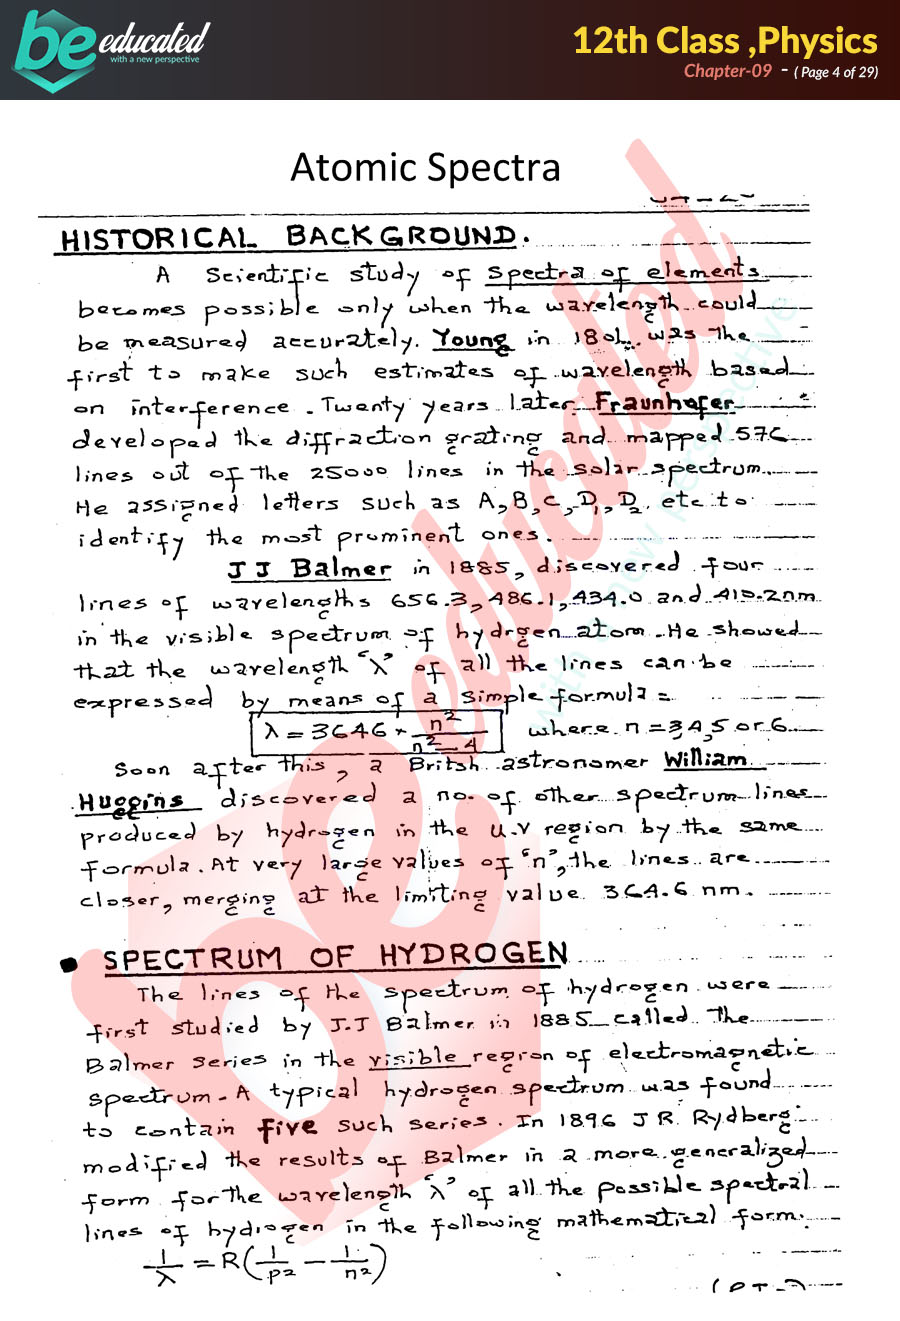 be educated
with a new perspective
12th Class ,Physics
Chapter-09 - ( Page 4 of 29)
Atomic Spectra
HISTORICAL BACKGROUND.
A Scientific study of spectra of elements
becomes possible only when the wavelength could
be measured accurately. Young in 1801 was the
first to make such estimates of wavelength based
on interference. Twenty years later Fraunhofer
developed the diffraction grating and mapped 576
lines out of the 25000 lines in the solar spectrum.
He assigned letters such as A, B, C, D1, D2 etc to
identify the most prominent ones.
J J Balmer in 1885, discovered four
lines of wavelengths 656.3, 486.1, 434.0 and 410.2nm
in the visible spectrum of hydrgen atom. He showed
that the wavelength 'λ' of all the lines can be
expressed by means of a simple formula =
λ = 3646 × n²/(n² - 4) where n = 3,4,5 or 6
Soon after this, a Britsh astronomer William
Huggins discovered a no. of other spectrum lines
produced by hydrogen in the u.v region by the same
formula. At very large values of 'n', the lines are
closer, merging at the limiting value 364.6 nm.
• SPECTRUM OF HYDROGEN
The lines of the spectrum of hydrogen were
first studied by J.J Balmer in 1885 called the
Balmer series in the visible region of electromagnetic
spectrum. A typical hydrogen spectrum was found
to contain five such series. In 1896 J R. Rydberg
modified the results of Balmer in a more generalized
form for the wavelength 'λ' of all the possible spectral
lines of hydrogen in the following mathematical form.
1/λ = R(1/p² - 1/n²)
be educated
with a new perspective